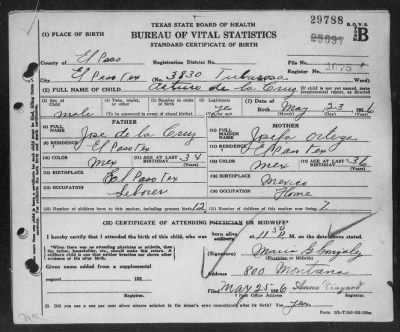 TEXAS STATE BOARD OF HEALTH
BUREAU OF VITAL STATISTICS
STANDARD CERTIFICATE OF BIRTH
29788
B.O.V.S.
B
(1) PLACE OF BIRTH
County of El Paso
Registration District No.
City of El Paso Tex No. 3830 Tularosa
Register No. 1075
(2) FULL NAME OF CHILD Arturo de la Cruz
(3) Sex of Child male
(4) Twin, triplet, or other
(5) Number in order of birth
(To be answered only in event of plural births)
(6) Legitimate? ye
(7) Date of Birth May 23 1926
FATHER
MOTHER
(8) FULL NAME Jose de la Cruz
FULL MAIDEN NAME Josefa Ortega
(9) RESIDENCE El Paso Tex
RESIDENCE El Paso Tex
(10) COLOR Mex (11) AGE AT LAST BIRTHDAY 34 (Years)
COLOR Mex AGE AT LAST BIRTHDAY 36 (Years)
(12) BIRTHPLACE El Paso Tex
BIRTHPLACE Mexico
(13) OCCUPATION Laborer
OCCUPATION Home
Number of children born to this mother, including present birth 12
Number of children of this mother now living 7
(22) CERTIFICATE OF ATTENDING PHYSICIAN OR MIDWIFE*
I hereby certify that I attended the birth of this child, who was born alive at 11 30 P M. on the date above stated.
*When there was no attending physician or midwife, then the father, householder, etc., should make this return.
(Signature) Maria G. Gonzalez
(Physician or Midwife)
Given name added from a supplemental
report 192
Address 800 Montana
Filed May 25 1926
Post Office Address
yes